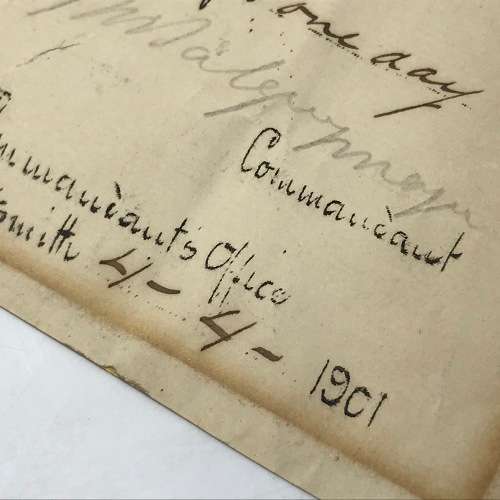 one day
Commandant
Commandant's Office
smith 4 - 4 - 1901